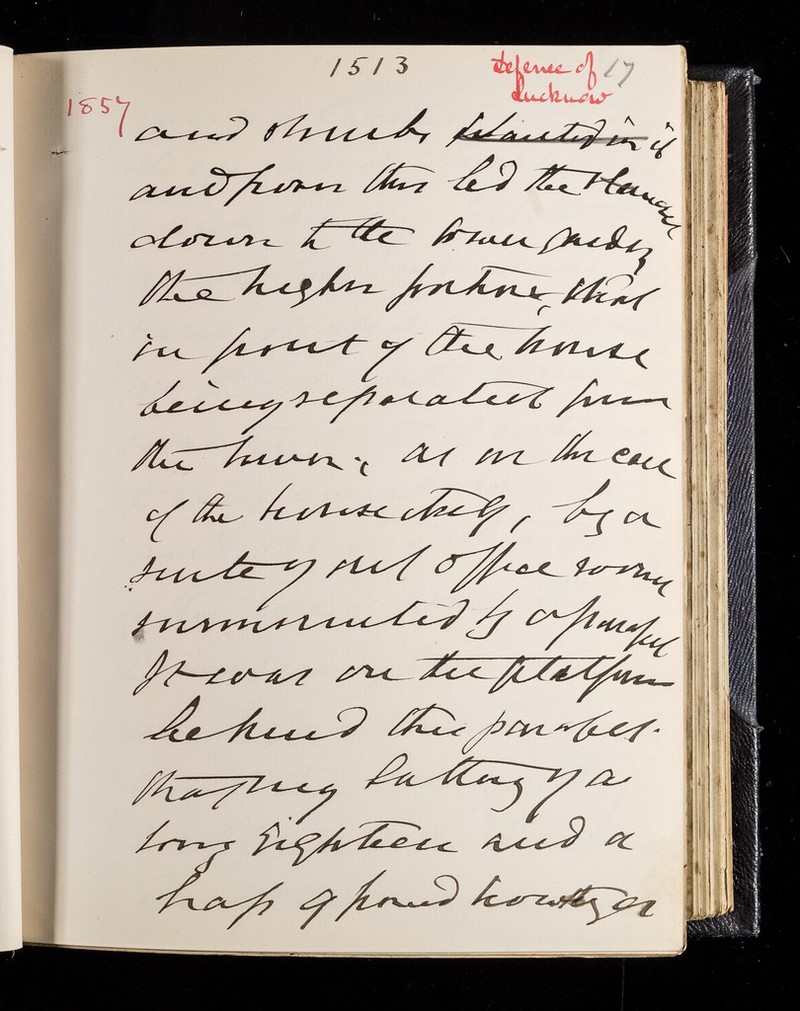 1513
Defence of 17
Lucknow
1857
and shrubs planted in it
and from this led the
down to the lower garden
the higher portion, that
in front of the house
being separated from
the lower, as in the case
of the house itself, by a
suite of out office rooms
surmounted by a parapet
It was on the platform
behind this parapet
that my battery of a
long Eighteen and a
half 9 pound howitzer